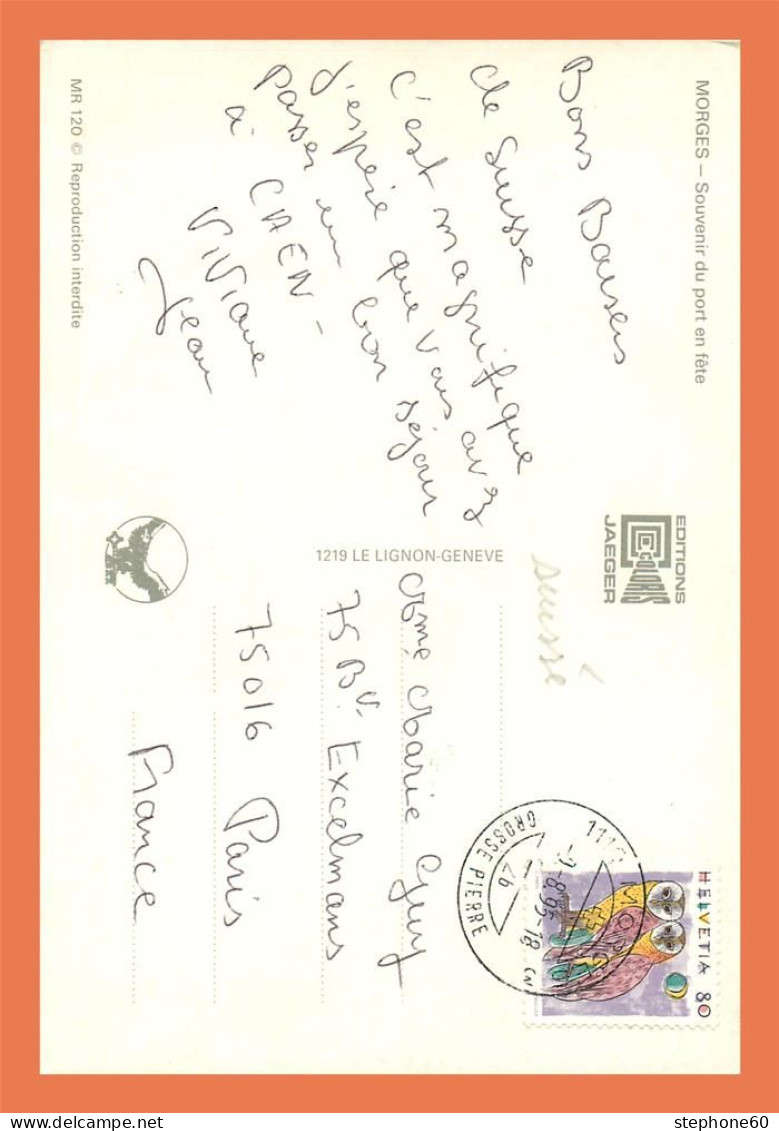 MORGES — Souvenir du port en fête
Bons Baisers
de Suisse
c'est magnifique
j'espère que vous avez
passer un bon séjour
à CAEN -
ViViane
Jean
MR 120 © Reproduction interdite
EDITIONS
JAEGER
COLORIS
1219 LE LIGNON-GENEVE
suisse
Mme Marie Guy
75 Bv. Excelmans
75016 Paris
France
HELVETIA 80
1110 MORGES
-9-8.95-18
GROSSE PIERRE
stephone60